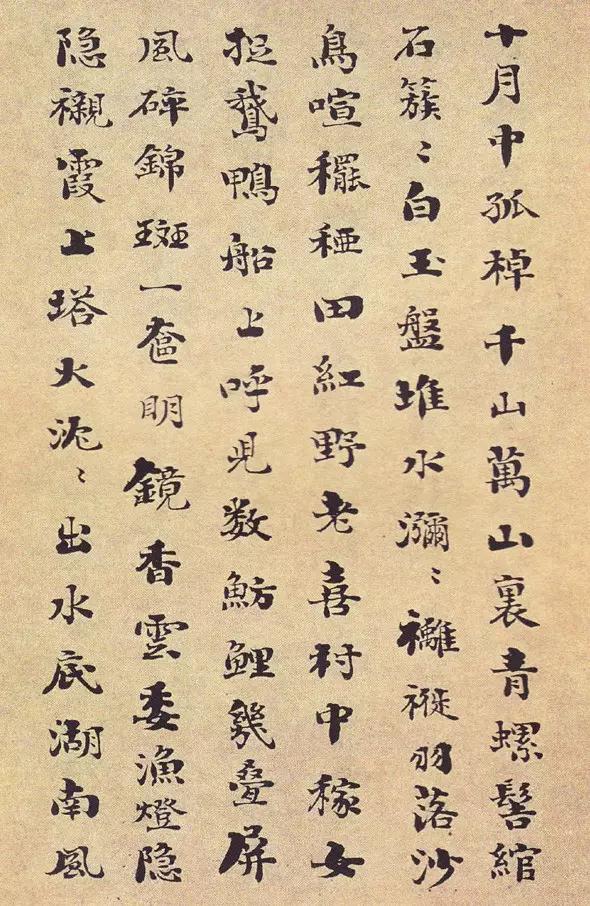 十月中孤棹千山萬山裏青螺髻綰
石簇〻白玉盤堆水瀰〻䙰褷羽落沙
鳥喧穲稏田紅野老喜村中稼女
捉鵝鴨船上呼児数魴鯉幾疊屏
風碎錦斑一奩明鏡香雲委漁燈隐
隐襯霞上塔火泥〻出水底湖南風